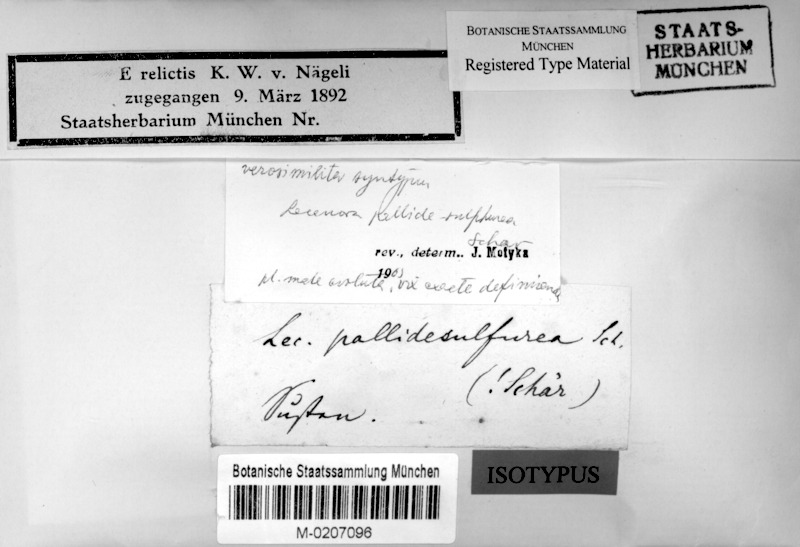 BOTANISCHE STAATSSAMMLUNG
MÜNCHEN
Registered Type Material
STAATS-
HERBARIUM
MÜNCHEN
E relictis K. W. v. Nägeli
zugegangen 9. März 1892
Staatsherbarium München Nr.
verosimiliter syntypus
Lecanora pallide-sulphurea
Schaer
rev., determ.. J. Motyka
pl. male evoluta, vix exacte definienda
Lec. pallidesulfurea Sch.
(! Schär)
Susten.
ISOTYPUS
Botanische Staatssammlung München
M-0207096